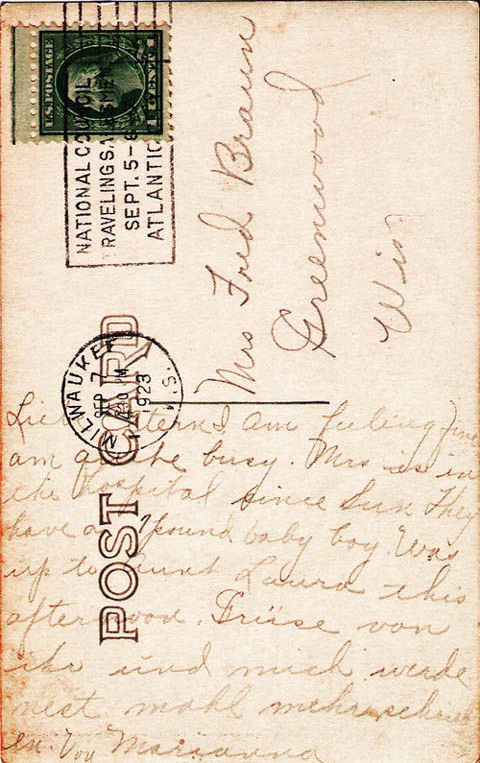 U.S. POSTAGE
1 CENT 1
NATIONAL COUNCIL
TRAVELING SALESMEN
SEPT. 5-8
ATLANTIC
MILWAUKEE
SEP 7
M
1923
WIS.
POST CARD
Mrs Fred Braun
Greenwood
Wis
Eltern I am feeling fine
am quite busy. Mrs is in
the hospital since Sun They
have a 7 pound baby boy. Was
up to Aunt Laura this
afternoon. Grüse von
ihr und mich werde
nest mahl mehr schreib
en. Von Marianna